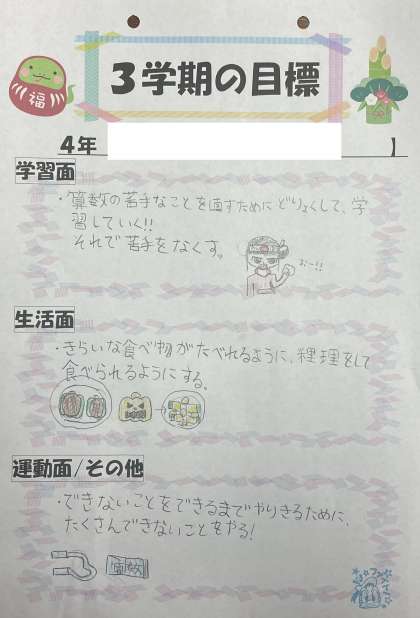 福
3学期の目標
4年
】
学習面
・算数の苦手なことを直すためにどりょくして、学
習していく!!
それで苦手をなくす。
おー!!
生活面
・きらいな食べ物がたべれるように、料理をして
食べられるようにする。
運動面/その他
・できないことをできるまでやりきるために、
たくさんできないことをやる!
算数